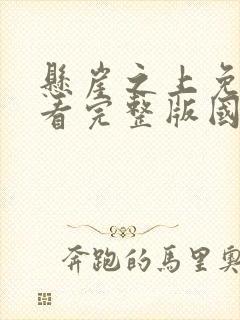 懸崖之上免
看完整版國
奔跑的馬里奧